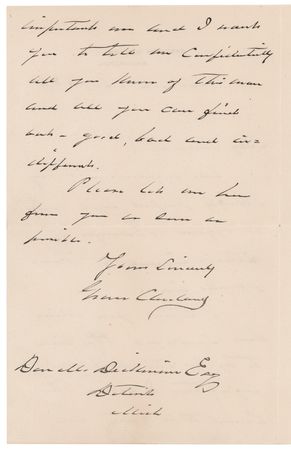 important one and I want
you to tell me Confidentially
all you know of this man
and all you can find
out – good, bad and in-
different.
Please let me hear
from you as soon as
possible.
Yours Sincerely
Grover Cleveland
Don M. Dickinson Esq
Detroit
Mich